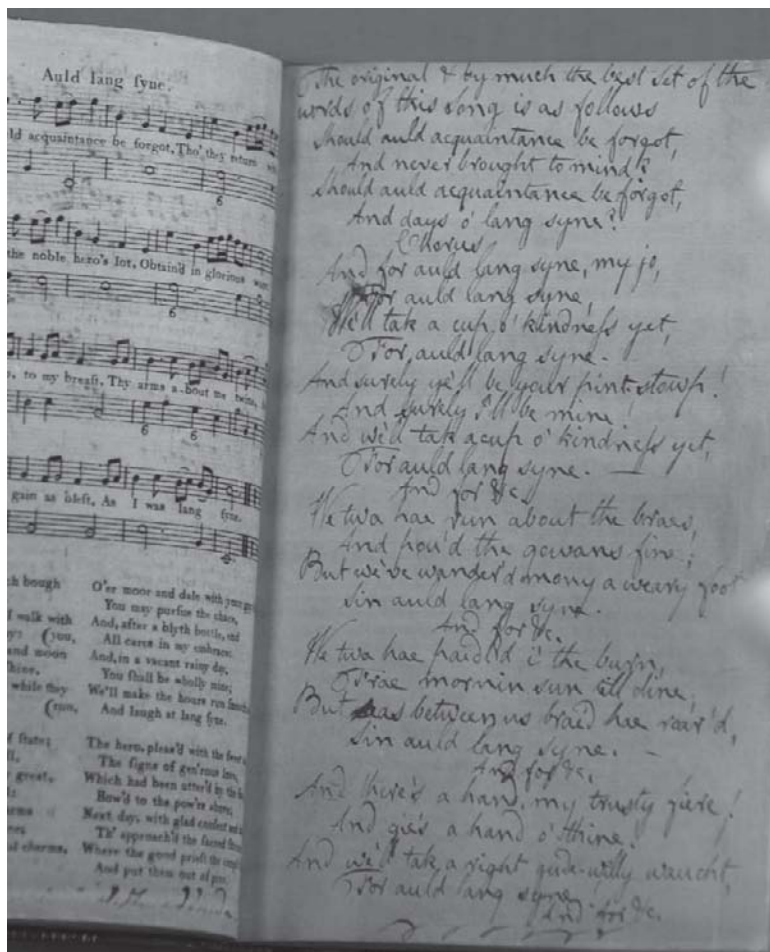 Auld lang ſyne.
ld acquaintance be forgot, Tho' they return
the noble hero's lot, Obtain'd in glorious
to my breaſt, Thy arms a-bout me twine,
gain as bleſt, As I was lang ſyne.
bough
walk with
(you,
and moon
while they
(run,
of ſtate;
great,
charms.
O'er moor and dale with your
You may purſue the chace,
And, after a blyth bottle, end
All cares in my embrace:
And, in a vacant rainy day,
You ſhall be wholly mine;
We'll make the hours run
And laugh at lang ſyne.
The hero, pleas'd with the
The ſigns of gen'rous love,
Which had been utter'd by the
Bow'd to the pow'rs above;
Next day, with glad
Th' approach'd the ſacred
Where the good prieſt the
And put them out of
The original & by much the best set of the
words of this song is as follows
Should auld acquaintance be forgot,
And never brought to mind?
Should auld acquaintance be forgot,
And days o' lang syne?
Chorus
And for auld lang syne, my jo,
For auld lang syne,
We'll tak a cup o' kindneſs yet,
For auld lang syne.
And surely ye'll be your pint-stowp!
And surely I'll be mine!
And we'll tak a cup o' kindneſs yet,
For auld lang syne. —
And for &c.
We twa hae run about the braes,
And pou'd the gowans fine;
But we've wander'd mony a weary foot
Sin auld lang syne.
And for &c.
We twa hae paidl'd i' the burn,
Frae mornin sun till dine;
But seas between us braid hae roar'd,
Sin auld lang syne. —
And for &c.
And there's a hand, my trusty fiere!
And gie's a hand o' thine!
And we'll tak a right gude-willy waught,
For auld lang syne
And for &c.